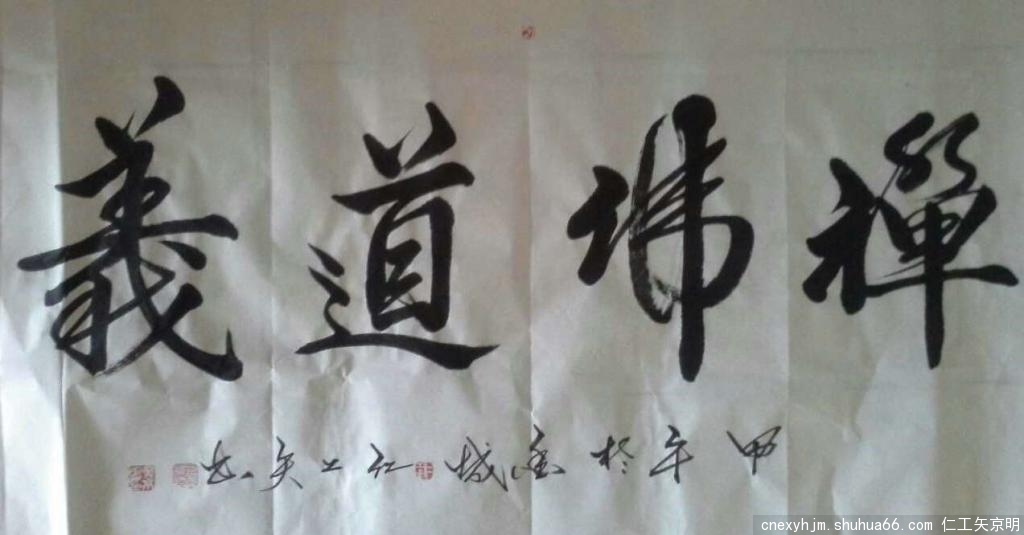 禪佛道義
甲午於城仁工矢书
cnexyhjm.shuhua66.com 仁工矢京明